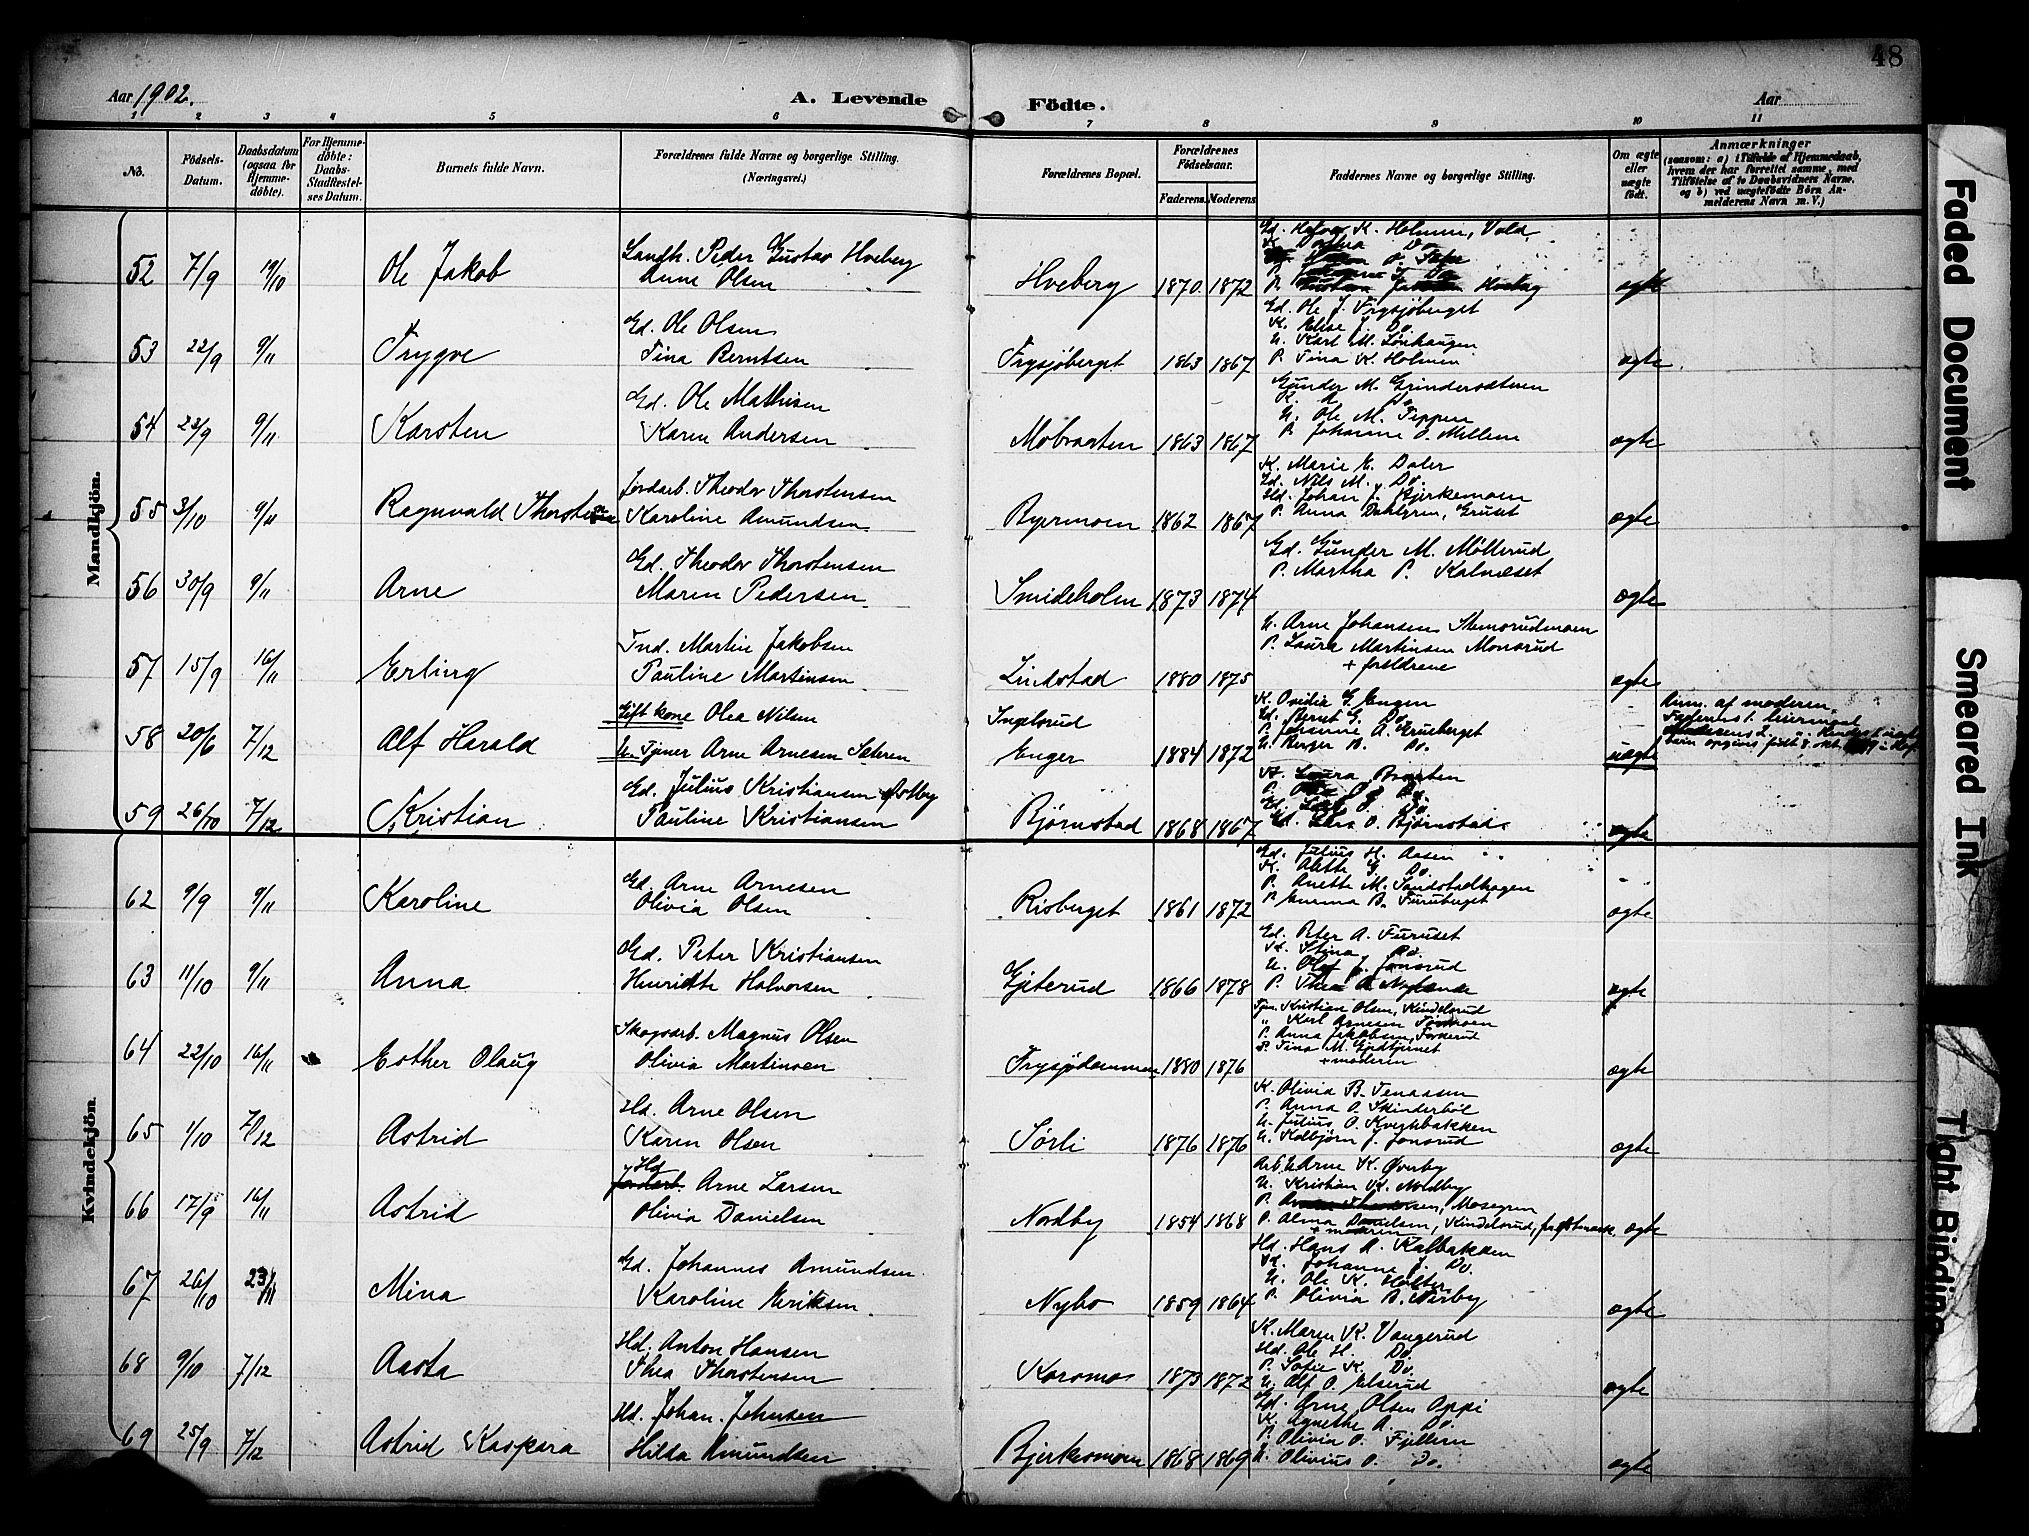 48
Aar 1902.
A. Levende Födte.
Aar
1 2 3 4 5 6 7 8 9 10 11
No.
Födsels-Datum.
Daabsdatum (ogsaa for Hjemme-döbte).
For Hjemme-döbte: Daabs-Stadfæstel-ses Datum.
Barnets fulde Navn.
Forældrenes fulde Navne og borgerlige Stilling. (Næringsvei.)
Forældrenes Bopæl.
Forældrenes Födselsaar.
Faderens. Moderens.
Faddernes Navne og borgerlige Stilling.
Om ægte eller uægte födt.
Anmærkninger
(saasom: a) i Tilfælde af Hjemmedaab, hvem der har forrettet samme, med Tilföielse af to Daabsvidners Navne, og b) ved uægtefödte Börn An-melderens Navn m. V.)
Mandkjön.
52 7/9 19/10 Ole Jakob
Landh. Peder Gustav Hveberg
Anne Olsen
Hveberg 1870 1872
K. Holmen, Vold
ægte
53 22/9 9/11 Trygve
Gd. Ole Olsen
Tina Berntsen
Frysjøberget 1863 1867
Gd. Ole J. Frysjøberget
K. Elise J. Do.
U. Karl M. Lønhaugen
P. Tina K. Holmen
ægte
54 22/9 9/11 Karsten
Gd. Ole Mathisen
Karen Andersen
Møbraaten 1863 1867
Gunder M. Grindersætren
U. Ole M. Teppen
P. Johanne O. Mellem
ægte
55 3/10 9/11 Ragnvald Thorstein
Jordarb. Theodor Thorstensen
Karoline Amundsen
Byermoen 1862 1867
K. Marie E. Daler
Gd. Nils M. Do.
Hd. Johan J. Bjerkemoen
P. Anna Dahlgren, Gruset
ægte
56 30/9 9/11 Arne
Gd. Theodor Thorstensen
Maren Pedersen
Smideholm 1873 1874
Gd. Gunder M. Møllerud
P. Martha P. Kalnæset
ægte
57 15/9 16/11 Erling
Ind. Martin Jakobsen
Pauline Martinsen
Lindstad 1880 1875
U. Arne Johansen Stemsrudmoen
P. Laura Martinsen Monsrud
+ forældrene
ægte
58 20/6 7/12 Alf Harald
Gift kone Olea Nilsen
U. Tjener Arne Arnesen Sæteren
Ingelsrud
Enger 1884 1872
K. Ovidia G. Engen
Gd. Bernt G. Do.
P. Johanne A. Grueberget
U. Birger B. Do.
uægte
Anm. af moderen.
Faderens 1. leiermaal
59 26/10 7/12 Kristian
Gd. Julius Kristiansen Østby
Pauline Kristiansen
Bjørnstad 1868 1867
K. Laura Braaten
Gd. Elias O. Bjørnstad
ægte
Kvindekjön.
62 9/9 9/11 Karoline
Gd. Arne Arnesen
Olivia Olsen
Risberget 1861 1872
Gd. Julius H. Aasen
K. Alette G. Do.
P. Anette M. Sandstadhagen
P. Emma B. Furuberget
ægte
63 11/10 9/11 Anna
Gd. Peter Kristiansen
Henriette Halvorsen
Gjeterud 1866 1878
Gd. Peter A. Furuset
K. Stina Do.
U. Olaf J. Jonsrud
P. Thea A. Nylænde
ægte
64 22/10 16/11 Esther Olaug
Skogsarb. Magnus Olsen
Olivia Martinsen
Frysjødammen 1880 1876
Tjen. Kristian Olsen, Kindelsrud
" Karl Arnesen
P. Anna Jakobsen
P. Tina M. Gjedtjernet
+ moderen
ægte
65 1/10 7/12 Astrid
Hd. Arne Olsen
Karen Olsen
Sørli 1876 1876
K. Olivia B. Tenaasen
P. Anna O. Skinderbøl
U. Julius O. Kveghbakken
U. Kolbjørn J. Jonsrud
ægte
66 17/9 16/11 Astrid
Hd. Jordarb. Arne Larsen
Olivia Danielsen
Nordby 1854 1868
Arb. U. Arne K. Øverby
U. Kristian K. Nordby
P. Mosegren
P. Alma Danielsen, Kindelsrud,
+ moderen
ægte
67 26/10 23/11 Mina
Gd. Johannes Amundsen
Karoline Eriksen
Nybo 1859 1864
Hd. Hans A. Kalbakken
K. Johanne J. Do.
U. Ole K. Holter
P. Olivia B. Nærby
ægte
68 9/10 7/12 Aasta
Hd. Anton Hansen
Thea Thorstensen
Korsmo 1873 1872
K. Maren K. Vangerud
Hd. Ole H. Do.
P. Sofie K. Do.
U. Alf O. Elserud
ægte
69 25/9 7/12 Astrid Kaspara
Hd. Johan Johnsen
Hilda Amundsen
Bjerkesmoen 1868 1869
Gd. Arne Olsen Oppi
K. Agnethe A. Do.
P. Olivia O. Fjellem
U. Olivius O. Do.
ægte
Faded Document
Smeared Ink
Tight Binding